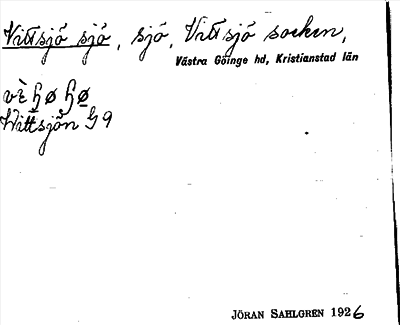 Vittsjö sjö, sjö, Vittsjö socken,
Västra Göinge hd, Kristianstad län
Wittsjön G 9
JÖRAN SAHLGREN 1926